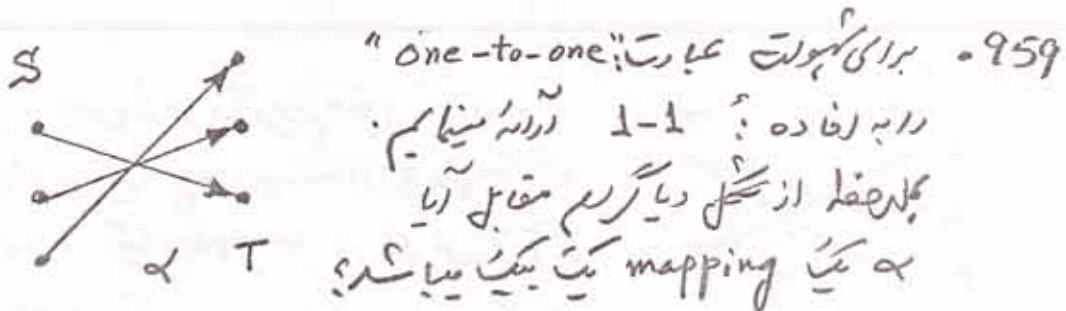 959. برای سهولت عبارت: "one-to-one"
را به افاده: 1-1 ارائه مینمایم.
بملاحظه از شکل دیاگرام مقابل آیا
α یک mapping یک بیک میباشد؟
S
α T